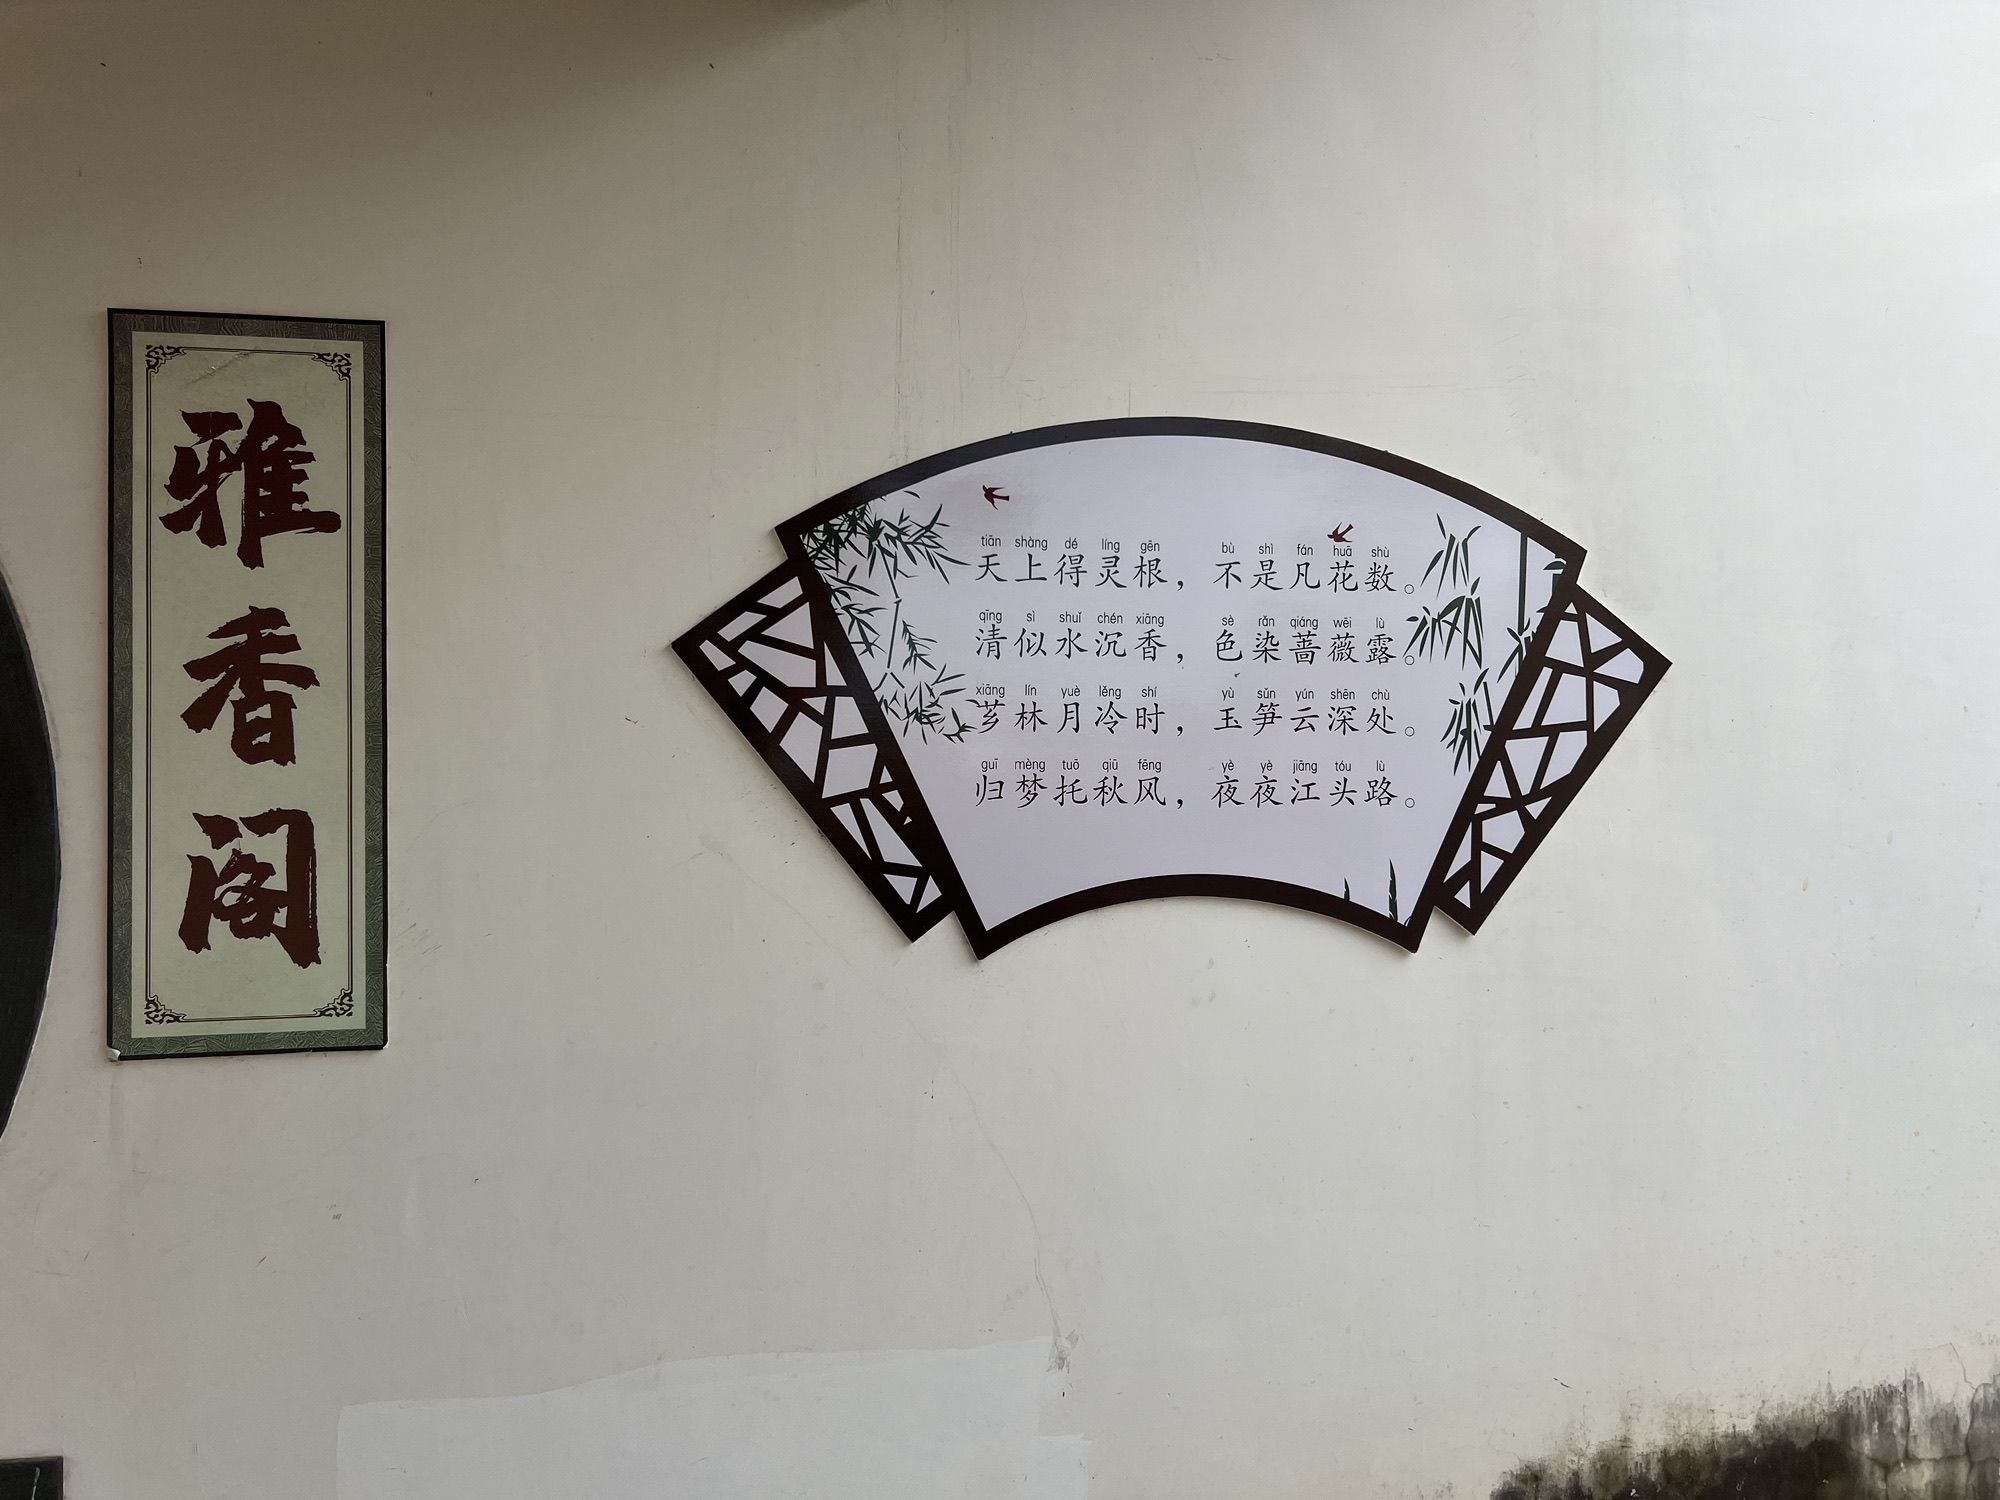 雅香阁
tiān shàng dé líng gēn bù shì fán huā shù
天上得灵根，不是凡花数。
qīng sì shuǐ chén xiāng sè rǎn qiáng wēi lù
清似水沉香，色染蔷薇露。
xiāng lín yuè lěng shí yù sǔn yún shēn chù
芗林月冷时，玉笋云深处。
guī mèng tuō qiū fēng yè yè jiāng tóu lù
归梦托秋风，夜夜江头路。